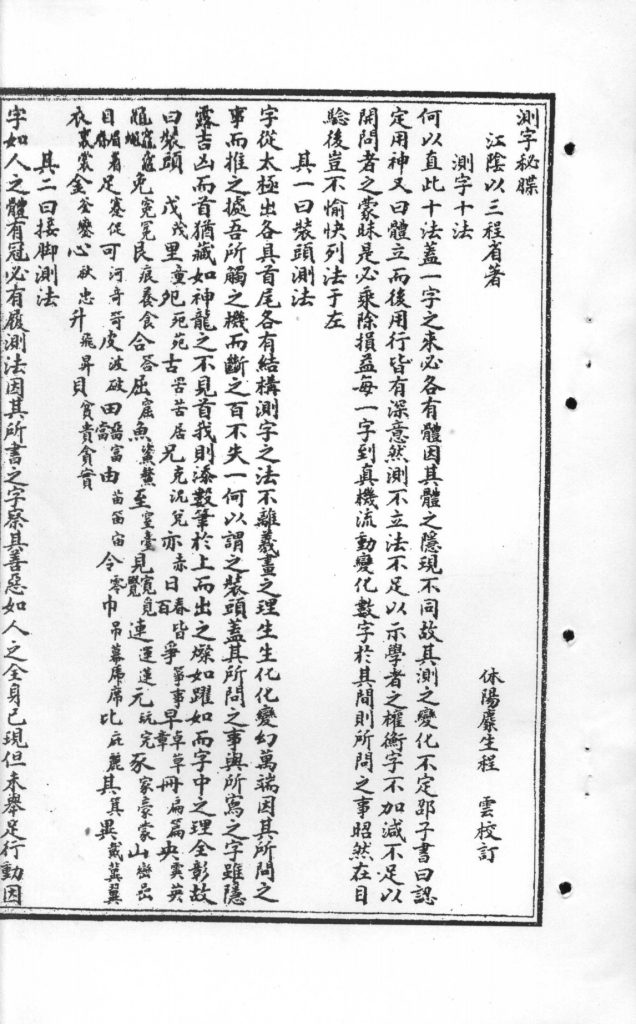 測字秘牒
江陰以三程省著　休陽麋生程　雲校訂
測字十法
何以直此十法蓋一字之來必各有體因其體之隱現不同故其測之變化不定邵子書曰認
定用神又曰體立而後用行皆有深意然測不立法不足以示學者之權衡字不加減不足以
開問者之蒙昧是必乘除損益每一字到真機流動變化數字於其間則所問之事昭然在目
驗後豈不愉快列法于左
其一曰裝頭測法
字從太極出各具首尾各有結構測字之法不離羲畫之理生生化化變幻萬端因其所問之
事而推之據吾所觸之機而斷之百不失一何以謂之裝頭蓋其所問之事與所寫之字雖隱
露吉凶而首猶藏如神龍之不見首我則添數筆於上而出之燦如躍如而字中之理全彰故
曰裝頭　戊茂里童夗宛苑古苦居兄克況兌亦赤日春百皆爭箏事早卓草章冊扁篇央英
兔寃冕艮痕養食合答屈窟魚鯊鰲至窒臺見寬覓覺連蓮元玩完豕家豪蒙山巒岊
目眉着足蹇促可河奇苛皮波破田富由苗笛宙令零巾吊幕席比庇麗其箕異戴冀翼
衣裹裳金釜鑾心欲忠升飛昇貝賓貴貪實
其二曰接脚測法
字如人之體有冠必有履測法因其所書之字察其善惡如人之全身已現但未舉足行動因